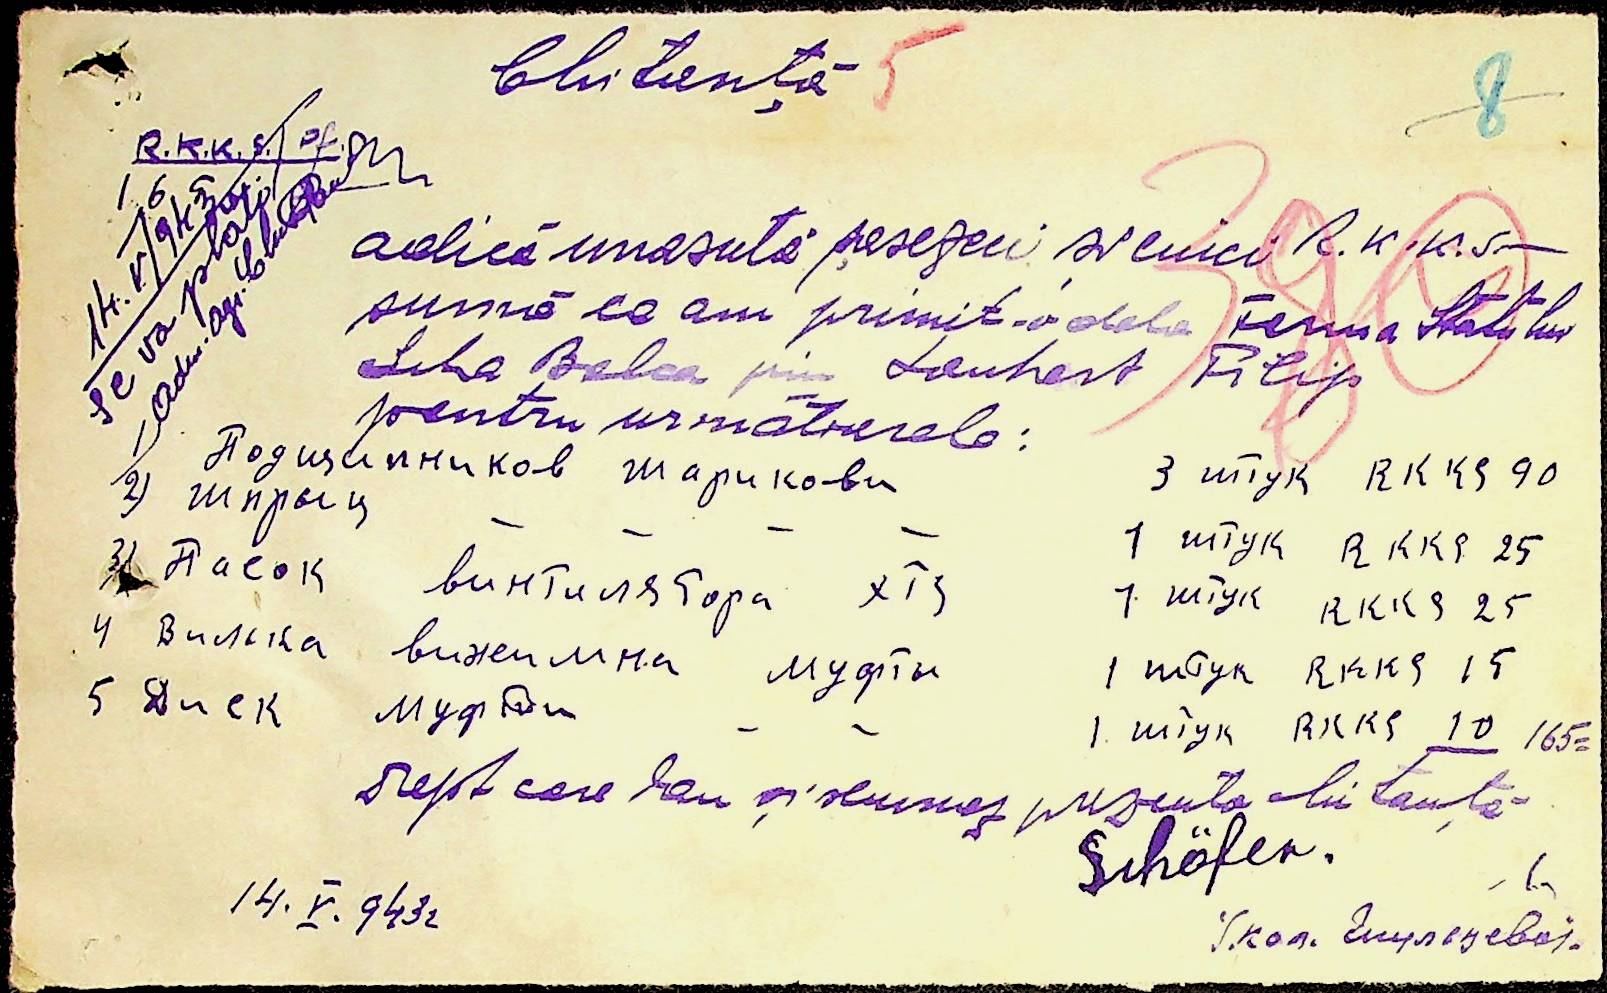 Chitanță 5
8
380
R.K.K.S.
165
14.V.943
Se va plati
Adm. agr.
adică unasută șasezeci si cinci R.K.K.S—
sumă ce am primit-o dela Ferma Statului
Balca prin Lenhart Filip
pentru următoarele:
1) Подшипников шарикови 3 штук RKKS 90
2) Шприц – – – – 1 штук RKKS 25
3) Пасок винтилятора ХТЗ 1 штук RKKS 25
4 Вилка вижимна муфты 1 штук RKKS 15
5 Диск муфти – – 1 штук RKKS 10 165=
Drept care dau și semnez prezenta chitanță
Schöfer.
14.V.943г